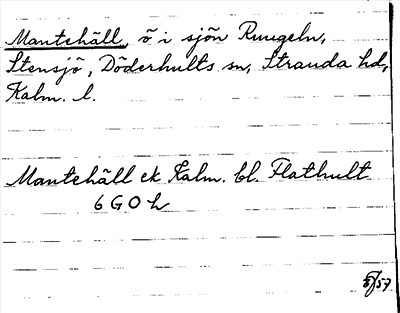 Mantehäll, ö i sjön Ruugeln,
Stensjö, Döderhults sn, Stranda hd,
Kalm. l.
Mantehäll ek Kalm. bl. Flathult
6 G O h
5/57